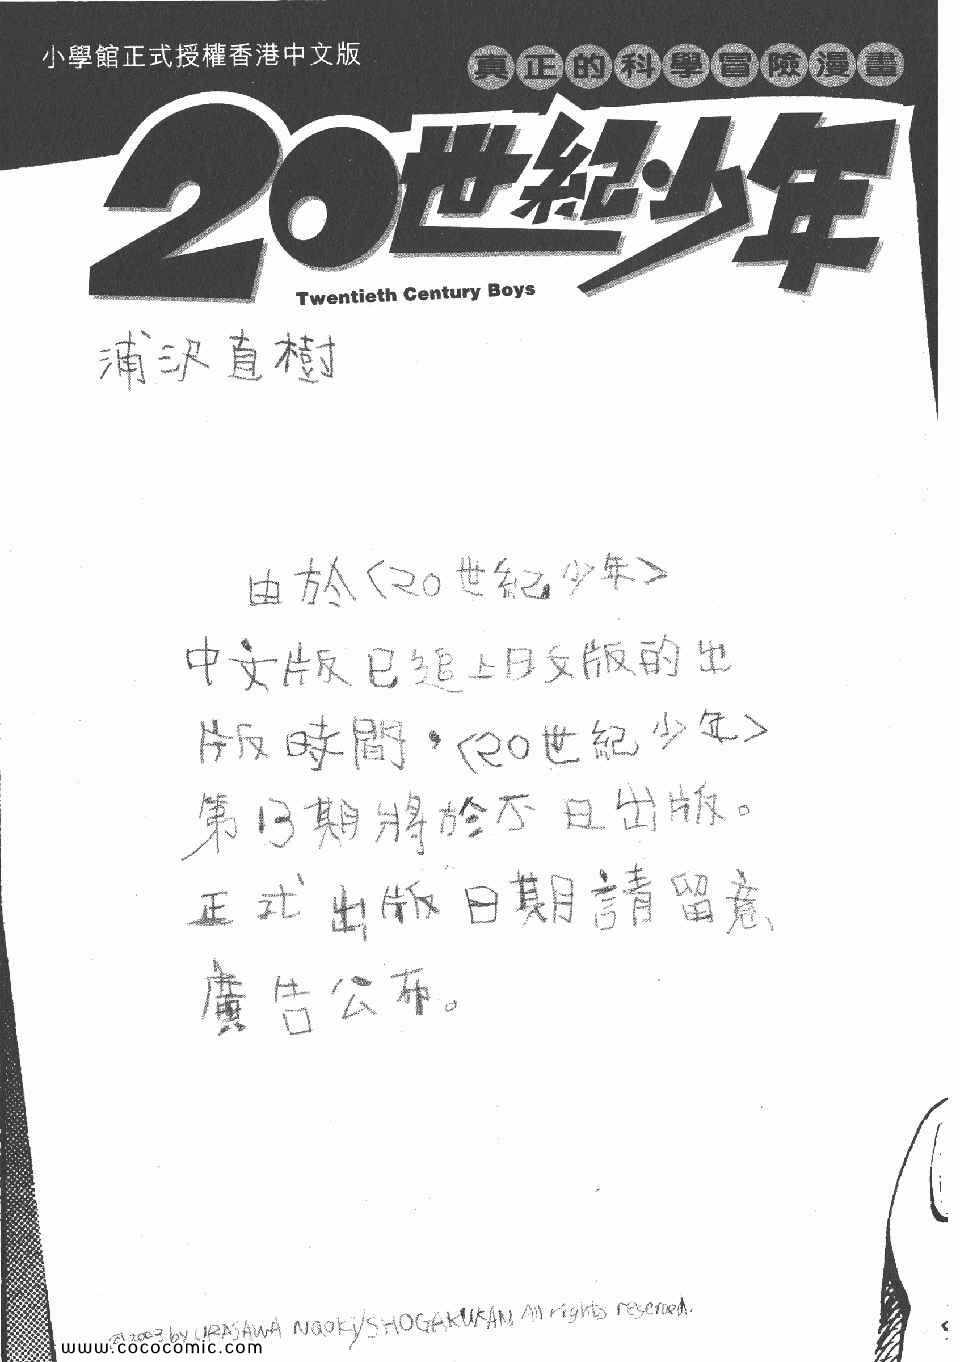 小學館正式授權香港中文版
真正的科學冒險漫畫
20世紀少年
Twentieth Century Boys
浦沢直樹
由於〈20世紀少年〉
中文版已追上日文版的出
版時間，〈20世紀少年〉
第13期將於不日出版。
正式出版日期請留意
廣告公布。
©2003 by URASAWA Naoki/SHOGAKUKAN All rights reserved.
www.cococomic.com